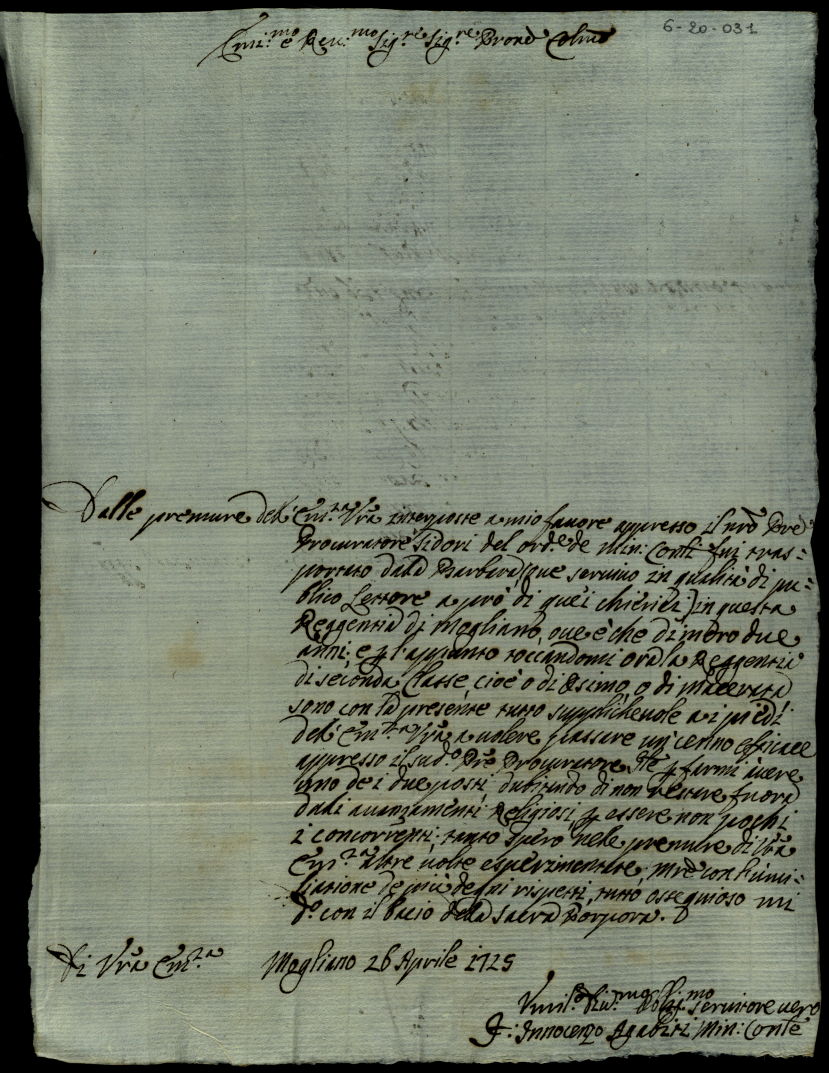 6-20-031
Emi:mo e Rev:mo Sig:re Sig:re Prone Colmo
Dalle premure dell'Em:za Vrã interposte a mio favore appresso il nrõ Prẽ
Procuratore Isidori del ord:e de Min: Conti fui tras=
portato dala Barbara (que serviuo in qualità di pu=
blico Lettore a prò di quei chierici) in questa
Reggentia di Mogliano, oue è che dimoro due
anni; e p l'appunto toccandomi ora la Reggentia
di seconda Classe, cioè o di Osimo, o di Macerata
sono con la presente tutto supplicheuole a i piedi
dell'Em:za Vrã a uolere passare un cenno efficace
appresso il sud:o Prẽ Procuratore, p farmi auere
uno de i due posti, dubitando di non restare fuora
dali auanzamenti Religiosi p essere non pochi
i concorrenti; tanto spero nele premure di Vrã
Em:za altre uolte esperimentate, mrẽ con humi=
liatione de più degni rispetti, tutto ossequioso mi
d:o con il bacio della Sacra Porpora.
Di Vrã Em:za Mogliano 26 Aprile 1725
Vmil:o Diu:mo Obl:mo seruitore uero
F: Innocenzo Agabiti Min: Conte